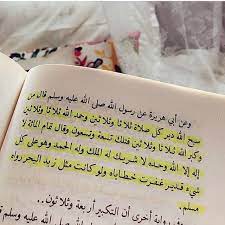 وعن أبي هريرة عن رسول الله صلى الله عليه وسلم قال من
سبح الله دبر كل صلاة ثلاثا وثلاثين وحمد الله ثلاثا وثلاثين
وكبر الله ثلاثا وثلاثين فتلك تسعة وتسعون وقال تمام المائة لا
إله إلا الله وحده لا شريك له له الملك وله الحمد وهو على كل
شيء قدير غفرت خطاياه ولو كانت مثل زبد البحر رواه
مسلم.
وفي رواية أخرى أن التكبير أربعة وثلاثون